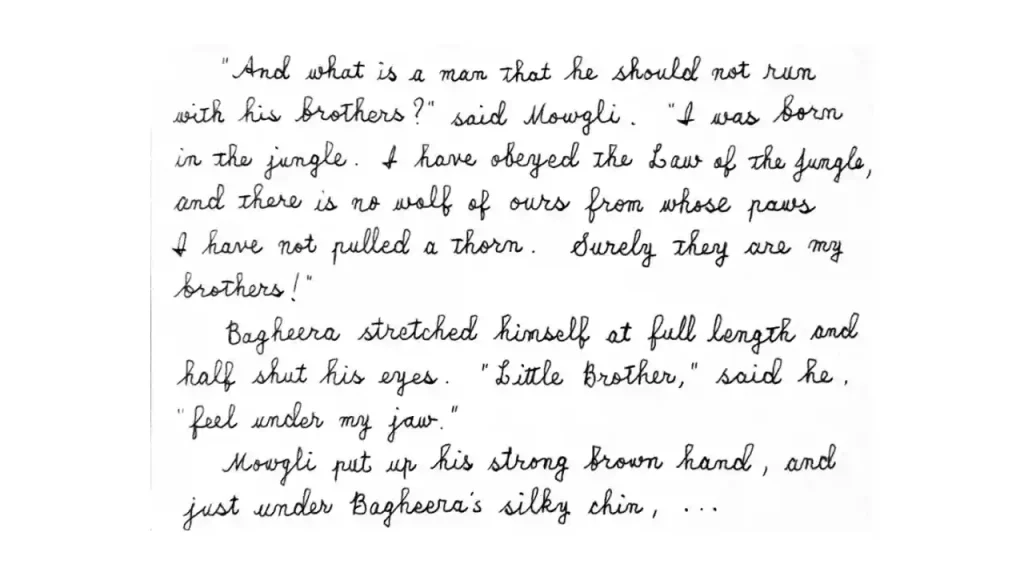 "And what is a man that he should not run
with his brothers?" said Mowgli. "I was born
in the jungle. I have obeyed the Law of the Jungle,
and there is no wolf of ours from whose paws
I have not pulled a thorn. Surely they are my
brothers!"
Bagheera stretched himself at full length and
half shut his eyes. "Little Brother," said he,
"feel under my jaw."
Mowgli put up his strong brown hand, and
just under Bagheera's silky chin, ...